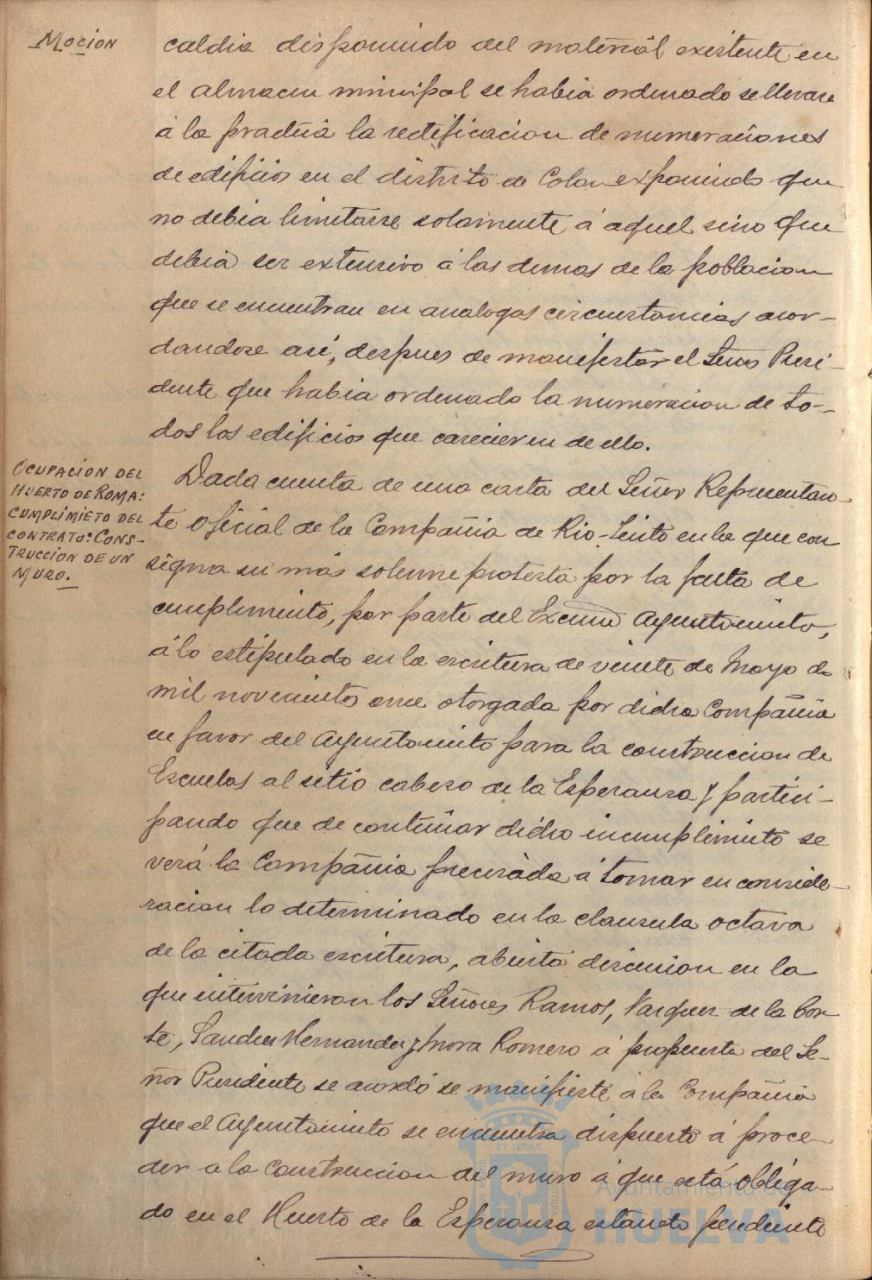 Mocion
caldia disponiendo del material existente en
el almacen municipal se habia ordenado se llevara
á la practica la rectificacion de numeraciones
de edificios en el distrito de Colon exponiendo que
no debia limitarse solamente á aquel sino que
debia ser extensivo á las demas de la poblacion
que se encuentran en analogas circunstancias acor-
dandose asi, despues de manifestar el Señor Presi-
dente que habia ordenado la numeracion de to-
dos los edificios que carecieren de ello.
OCUPACION DEL
HUERTO DE ROMA:
CUMPLIMIETO DEL
CONTRATO: CONS-
TRUCCION DE UN
MURO.
Dada cuenta de una carta del Señor Representan-
te oficial de la Compañia de Rio-Tinto en la que con
signa su más solemne protesta por la falta de
cumplimiento, por parte del Excmo Ayuntamiento,
á lo estipulado en la escritura de veinte de Mayo de
mil novecientos once otorgada por dicha Compañia
en favor del Ayuntamiento para la construccion de
Escuelas al sitio cabezo de la Esperanza y partici-
pando que de continuar dicho incumplimiento se
verá la Compañia precisada á tomar en conside-
racion lo determinado en la clausula octava
de la citada escritura, abierta discusion en la
que intervinieron los Señores Ramos, Vazquez de la Cor-
te, Sanchez Hernandez y Mora Romero á propuesta del Se-
ñor Presidente se acordó se manifieste á la Compañia
que el Ayuntamiento se encuentra dispuesto á proce-
der a la construccion del muro á que está obliga-
do en el Huerto de la Esperanza estando pendiente
Ayuntamiento de
HUELVA